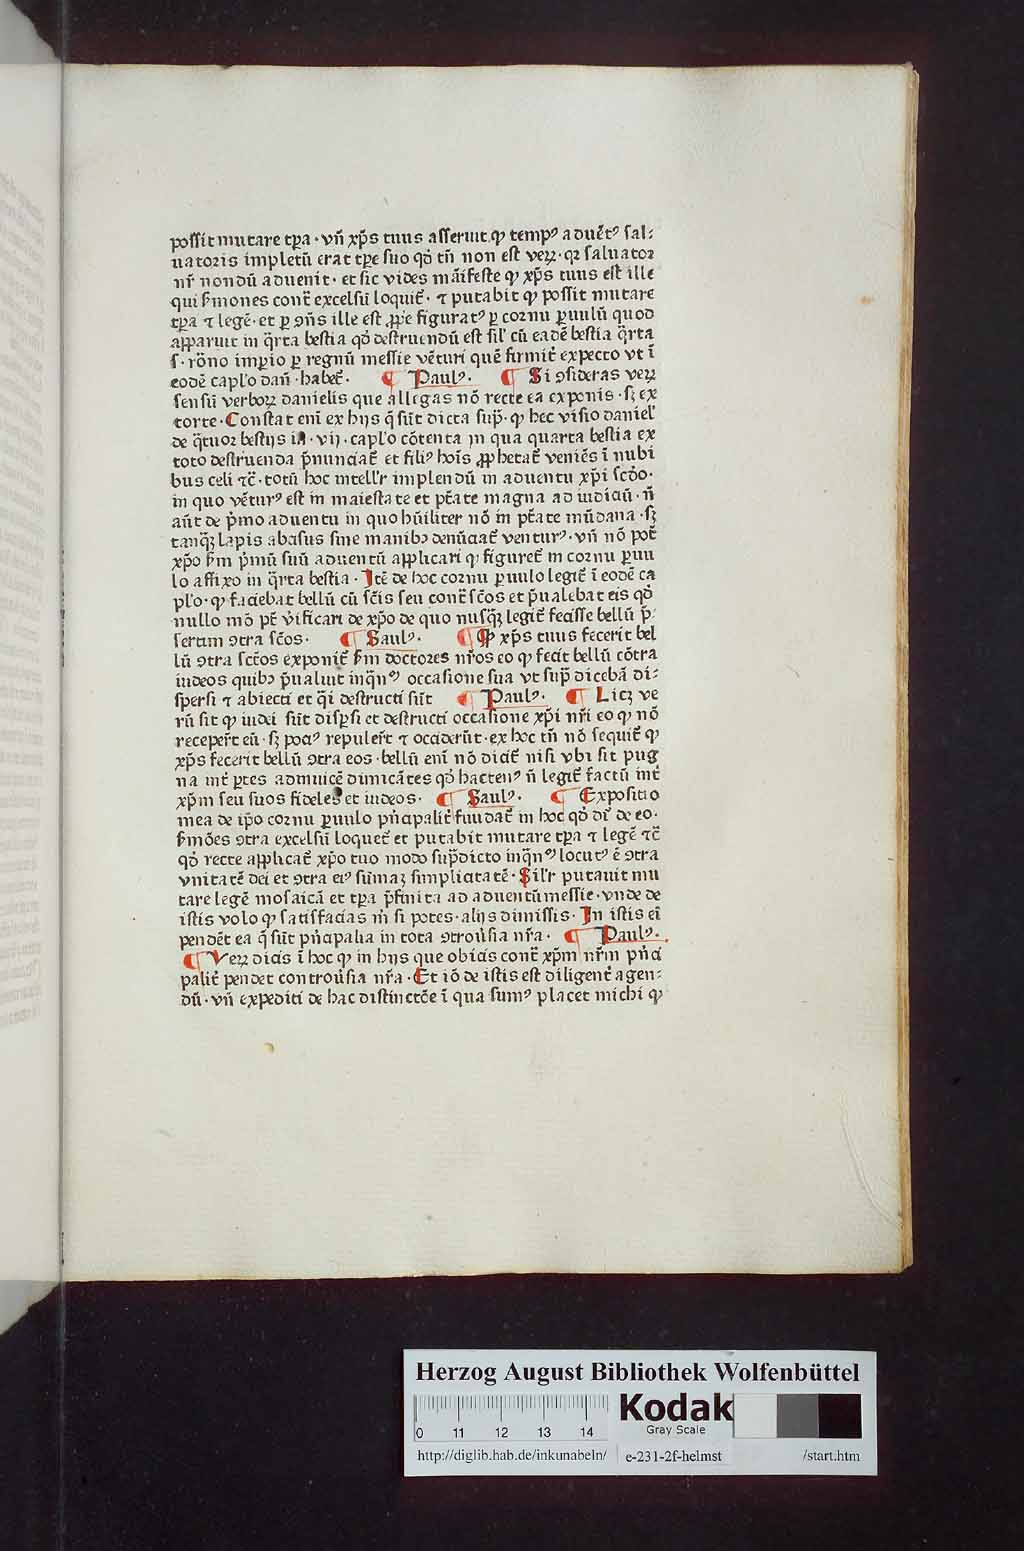 possit mutare tꝑa · vñ xp̄s tuus asseruit ꝙ tempꝰ aduētꝰ sal⸗
uatoris impletū erat tꝑe suo qd̕ tn̄ non est veꝝ · qꝛ saluator
nr̄ nondū aduenit · et sic vides māifeste ꝙ xp̄s tuus est ille
qui s̕mones cont̄ excelsū loquit̄ · ⁊ putabit ꝙ possit mutare
tꝑa ⁊ legē · et ꝑ ꝯñs ille est ꝓp̕e figuratꝰ ꝑ cornu ꝑuulū quod
apparuit in q̄rta bestia qd̕ destruendū est sil̕ cū eadē bestia q̄rta
s · rōno imꝑio ꝑ regnū messie vēturi quē firmit̕ expecto vt ī
eodē capl̕o dan̄ · habet̄ · ¶ Paulꝰ. ¶ Si ꝯsideras veꝝ
sensū verboꝝ danielis que allegas nō recte ea exponis · sꝫ ex
torte · Constat eni ex hijs q̄ sūt dicta sup̄ · ꝙ hec visio daniel̕
de q̄tuor bestijs in · vij · capl̕o cōtenta in qua quarta bestia ex
toto destruenda p̄nunciat̄ et filiꝰ hoīs ꝓphetat̄ veniēs ī nubi
bus celi ⁊c̄ · totū hoc intell̕r implendū in aduentu xp̄i scd̕o ·
in quo vēturꝰ est in maiestate et ptāte magna ad iudiciū · n̄
aūt de p̕mo aduentu in quo hūiliter nō in ptāte mūdana · sꝫ
tanqꝫ lapis abscisus sine manibꝫ denūciat̄ venturꝰ · vñ nō pot̄
xp̄o s̕m p̕mū suū aduentū applicari ꝙ figuret̄ in cornu ꝑuu
lo affixo in q̄rta bestia · Itē de hoc cornu ꝑuulo legit̄ ī eodē ca
pl̕o · ꝙ faciebat bellū cū sc̄is seu cont̄ sc̄os et p̄ualebat eis qd̕
nullo mō pt̄ v̕ificari de xp̄o de quo nusqꝫ legit̄ fecisse bellū p̄⸗
sertim ꝯtra sc̄os · ¶ Saulꝰ. ¶ Ꝙ xp̄s tuus fecerit bel
lū ꝯtra sctōs exponit̄ s̕m doctores nr̄os eo ꝙ fecit bellū cōtra
iudeos quibꝫ p̄ualuit inq̄nꝫ occasione sua vt sup̄ dicebā di⸗
spersi ⁊ abiecti et q̄i destructi sūt ¶ Paulꝰ. ¶ Licꝫ ve
rū sit ꝙ iudei sūt disꝑsi et destructi occasione xp̄i nr̄i eo ꝙ nō
receper̄t eū · sꝫ pociꝰ repuler̄t ⁊ occiderūt · ex hoc tn̄ nō sequit̄ ꝙ
xp̄s fecerit bellū ꝯtra eos · bellū eni nō dicit̄ nisi vbi sit pug
na int̕ ꝑtes admuicē dimicātes qd̕ hactenꝰ n̄ legit̄ factū int̕
xp̄m seu suos fideles et iudeos · ¶ Saulꝰ. ¶ Expositio
mea de ip̄o cornu ꝑuulo pn̕cipalit̕ fundat̄ in hoc qd̕ dr̄ de eo ·
s̕mōes ꝯtra excelsū loquet̄ et putabit mutare tꝑa ⁊ legē ⁊c̄
qd̕ recte applicat̄ xp̄o tuo modo sup̄dicto inq̄nꝫ locutꝰ ē ꝯtra
vnitatē dei et ꝯtra eiꝰ sūmaꝫ simplicitatē · Sil̕r putauit mu
tare legē mosaicā et tꝑa p̄finita ad aduentū messie · vnde de
istis volo ꝙ satisfacias m̕ si potes · alijs dimissis · In istis ei
pendēt ea q̄ sūt pn̕cipalia in tota ꝯtrou̕sia nr̄a · ¶ Paulꝰ.
¶ Veꝝ dicis ī hoc ꝙ in hijs que obicis cont̄ xp̄m nr̄m pn̕ci
palit̕ pendet controu̕sia nr̄a · Et iō de istis est diligent̕ agen⸗
dū · vñ expediti de hac distinctōe ī qua sumꝰ placet michi ꝙ
Herzog August Bibliothek Wolfenbüttel
0 11 12 13 14
Kodak
Gray Scale
http://diglib.hab.de/inkunabeln/ e-231-2f-helmst /start.htm